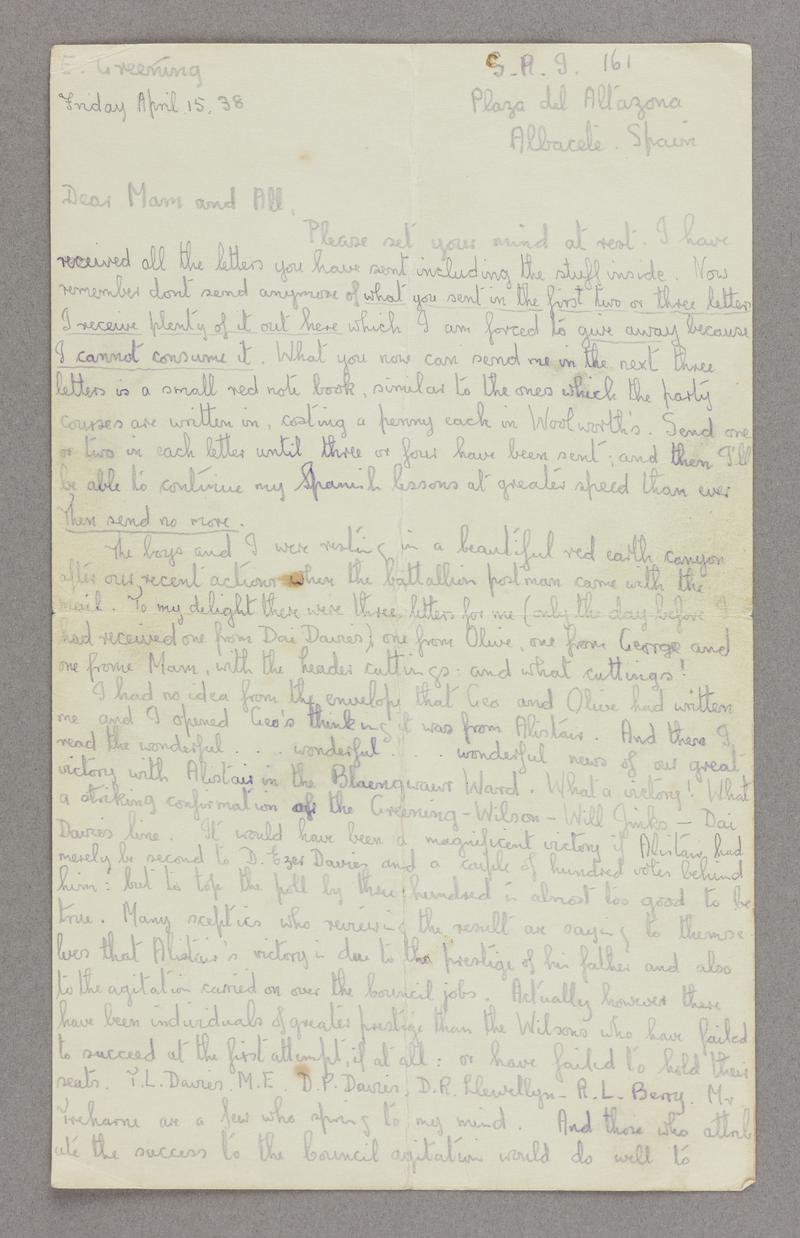 E. Greening
S.R.I. 161
Friday April 15. 38
Plaza del Altazona
Albacete. Spain
Dear Mam and All,
Please set your mind at rest. I have
received all the letters you have sent including the stuff inside. Now
remember dont send anymore of what you sent in the first two or three letters
I receive plenty of it out here which I am forced to give away because
I cannot consume it. What you now can send me in the next three
letters is a small red note book, similar to the ones which the party
courses are written in, costing a penny each in Woolworth's. Send one
or two in each letter until three or four have been sent; and then I'll
be able to continue my Spanish lessons at greater speed than ever
Then send no more.
The boys and I were resting in a beautiful red earth canyon
after our recent actions when the battallion postman came with the
mail. To my delight there were three letters for me (only the day before I
had received one from Dai Davies), one from Olive, one from George and
one frome Mam, with the header cuttings: and what cuttings!
I had no idea from the envelope that Geo and Olive had written
me and I opened Geo's thinking it was from Alistair. And there I
read the wonderful . . . wonderful . . . wonderful news of our great
victory with Alistair in the Blaengwawr Ward. What a victory! What
a striking confirmation of the Greening-Wilson-Will Jinks-Dai
Davies line. It would have been a magnificent victory if Alistair had
merely be second to D. Ezer Davies and a couple of hundred votes behind
him: but to top the poll by three hundred is almost too good to be
true. Many sceptics who reviewing the result are saying to themse
lves that Alistair's victory is due to the prestige of his father and also
to the agitation carried on over the Council jobs. Actually however there
have been individuals of greater prestige than the Wilsons who have failed
to succeed at the first attempt, if at all: or have failed to hold their
seats. T.L. Davies M.E. D.P. Davies, D.R. Llewellyn- R.L. Berry. Mr
Treharne are a few who spring to my mind. And those who attrib
ute the success to the Council agitation would do well to